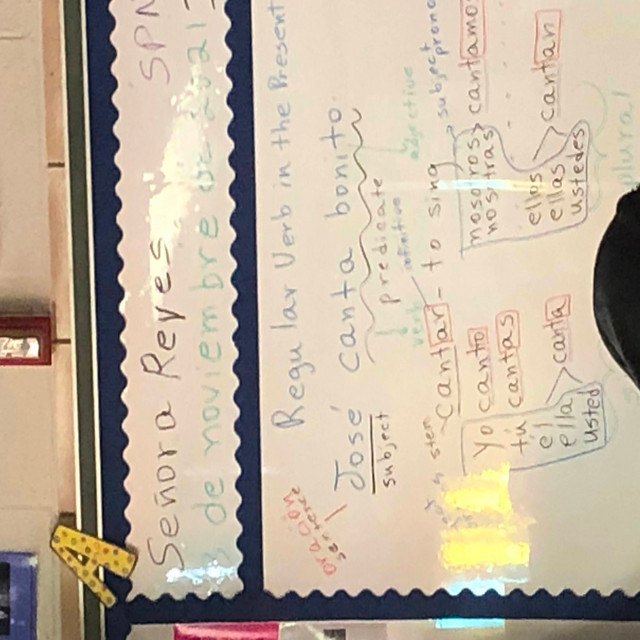 Señora Reyes SPN
de noviembre de 2021
Regular Verb in the Present
oración
sentence
José canta bonito
subject
predicate
verb infinitive adjective
stem
cantar - to sing
subject
Yo canto
tú cantas
él
ella
usted
canta
nosotros
nosotras
cantamos
ellos
ellas
ustedes
cantan
plural
A